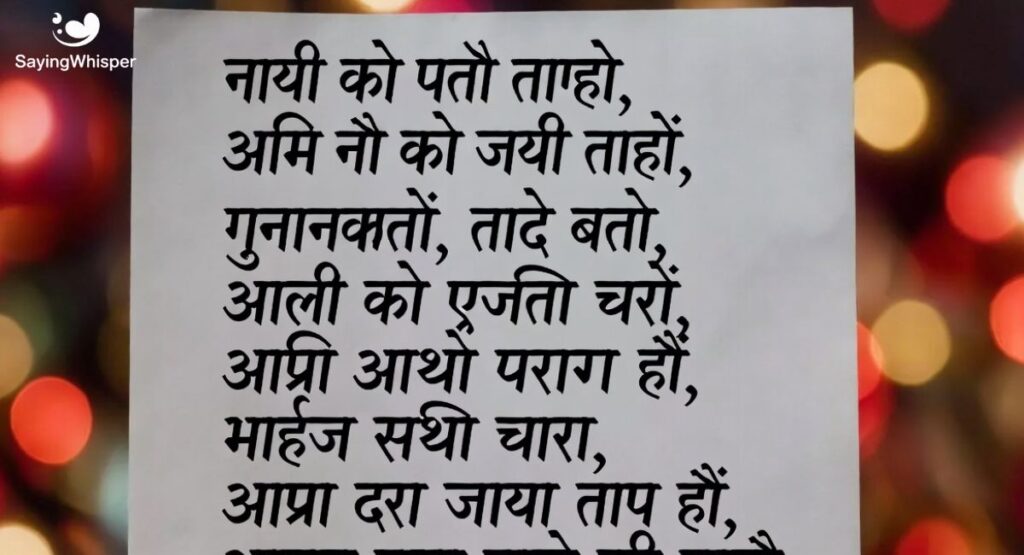 SayingWhisper
नायी को पतौ ताण्हो,
अमि नौ को जयी ताहों,
गुनानक्कतों, तादे बतो,
आली को एर्जती चरों,
आप्री आथो पराग हौं,
भार्हज सथी चारा,
आप्रा दरा जाया ताप हौं,